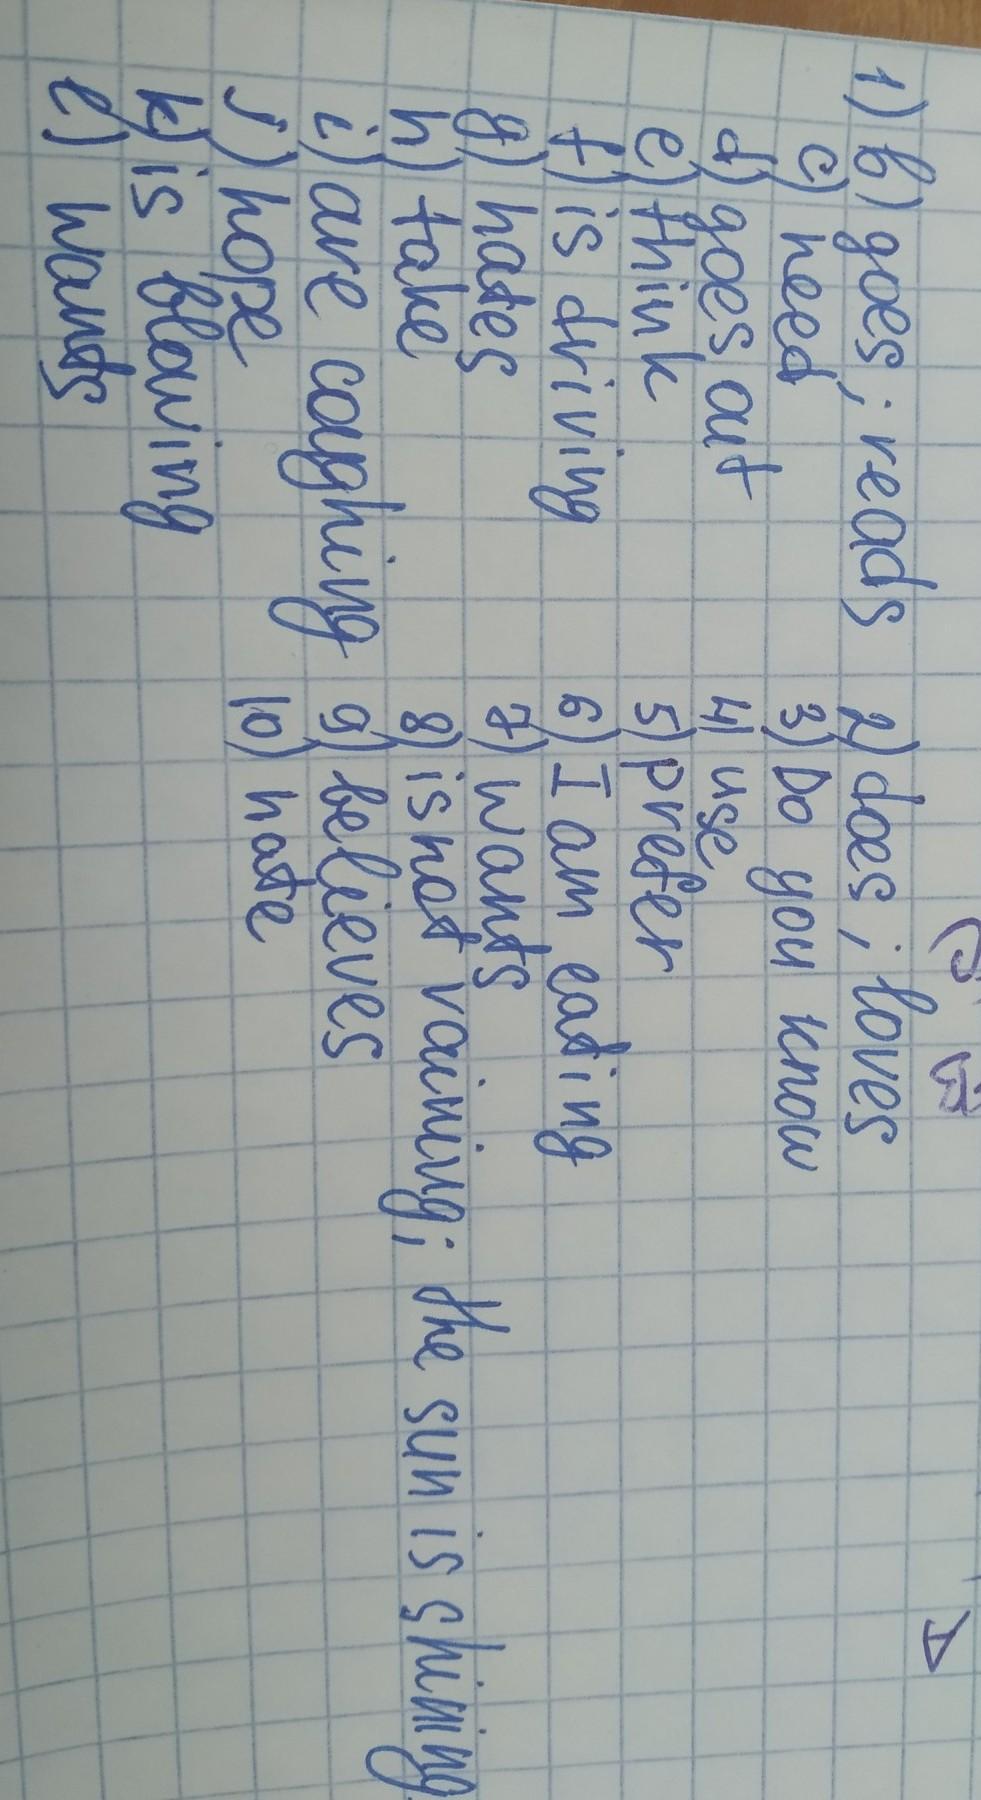 1) b) goes; reads
c) need
d) goes out
e) think
f) is driving
g) hates
h) take
i) are coughing
j) hope
k) is blowing
l) wants
2) does; loves
3) Do you know
4) use
5) prefer
6) I am eating
7) wants
8) is not raining; the sun is shining
9) believes
10) hate